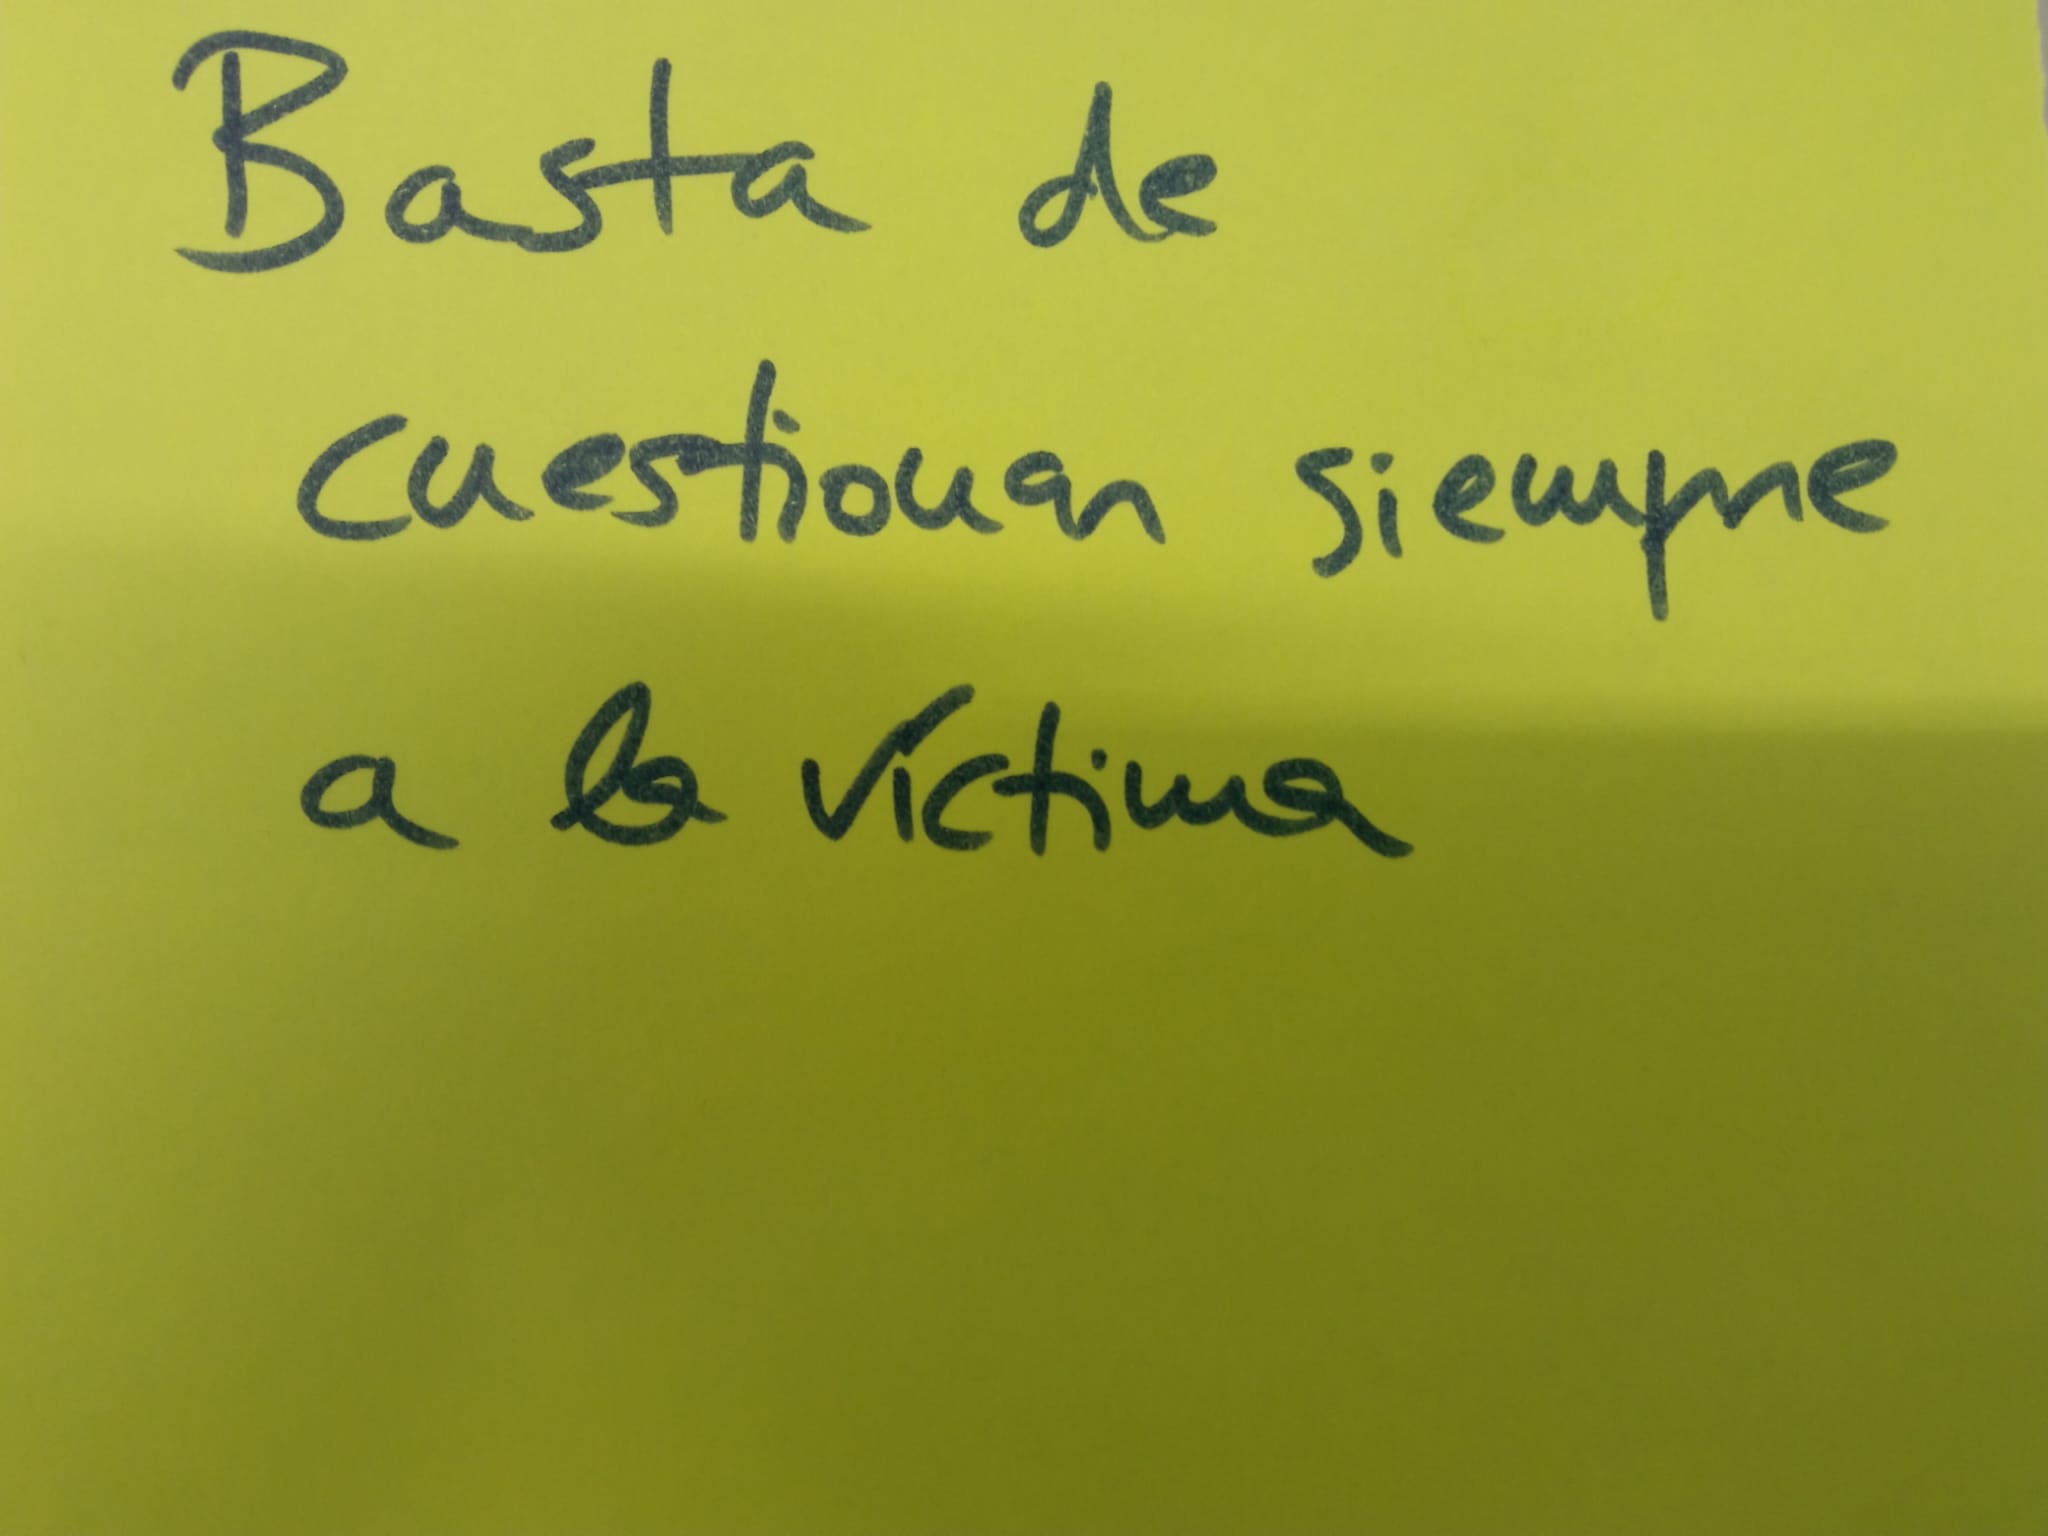 Basta de
cuestionar siempre
a la víctima